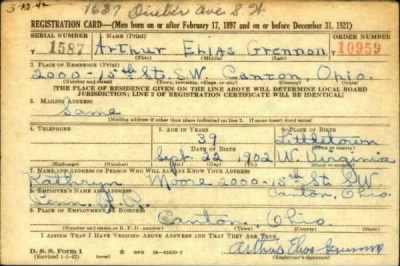 1637 Ave S.W.
REGISTRATION CARD—(Men born on or after February 17, 1897 and on or before December 31, 1921)
SERIAL NUMBER 1. NAME (Print) ORDER NUMBER
T 1587 Arthur Elias Grennon T 10959
(First) (Middle) (Last)
2. PLACE OF RESIDENCE (Print)
2000-15th St. S.W. Canton, Ohio.
(Number and street) (Town, township, village, or city) (County) (State)
[THE PLACE OF RESIDENCE GIVEN ON THE LINE ABOVE WILL DETERMINE LOCAL BOARD
JURISDICTION; LINE 2 OF REGISTRATION CERTIFICATE WILL BE IDENTICAL]
3. MAILING ADDRESS
Same
[Mailing address if other than place indicated on line 2. If same insert word same]
4. TELEPHONE 5. AGE IN YEARS 6. PLACE OF BIRTH
39 Littletown
DATE OF BIRTH (Town or county)
Sept. 22 1902 W. Virginia
(Exchange) (Number) (Mo.) (Day) (Yr.) (State or country)
7. NAME AND ADDRESS OF PERSON WHO WILL ALWAYS KNOW YOUR ADDRESS
Kathryn Moore 2000-15th St. S.W.
8. EMPLOYER'S NAME AND ADDRESS Canton, Ohio.
Penn.
9. PLACE OF EMPLOYMENT OR BUSINESS
Canton, Ohio
(Number and street or R. F. D. number) (Town) (County) (State)
I AFFIRM THAT I HAVE VERIFIED ABOVE ANSWERS AND THAT THEY ARE TRUE.
D. S. S. Form 1
(Revised 1-1-42) (over)
Arthur Elias Grennon